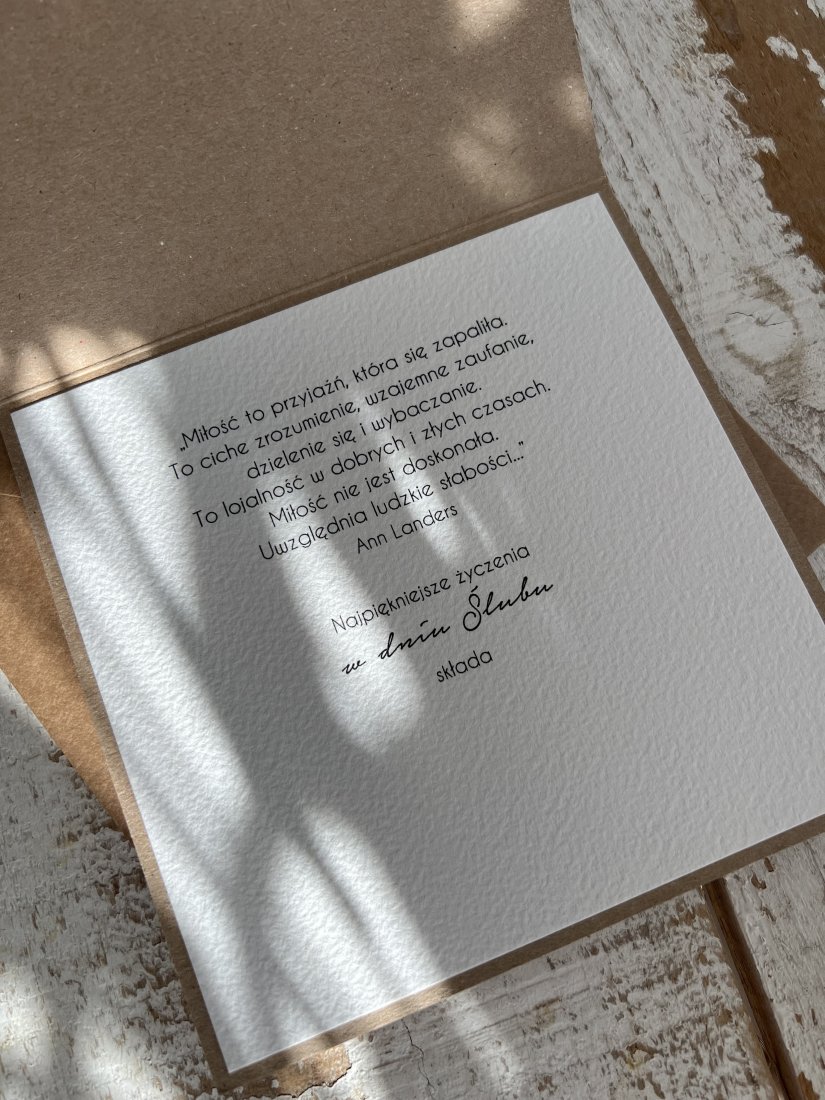 „Miłość to przyjaźń, która się zapaliła.
To ciche zrozumienie, wzajemne zaufanie,
dzielenie się i wybaczanie.
To lojalność w dobrych i złych czasach.
Miłość nie jest doskonała.
Uwzględnia ludzkie słabości..."
Ann Landers
Najpiękniejsze życzenia
w dniu Ślubu
składa